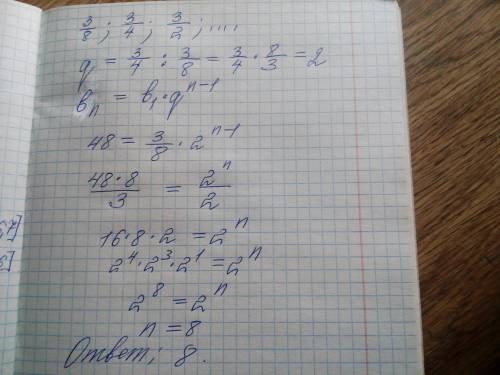 3/8 ; 3/4 ; 3/2 ; ....
q = 3/4 : 3/8 = 3/4 · 8/3 = 2
bₙ = b₁ · qⁿ⁻¹
48 = 3/8 · 2ⁿ⁻¹
48·8/3 = 2ⁿ/2
16·8·2 = 2ⁿ
2⁴·2³·2¹ = 2ⁿ
2⁸ = 2ⁿ
n = 8
Ответ: 8.